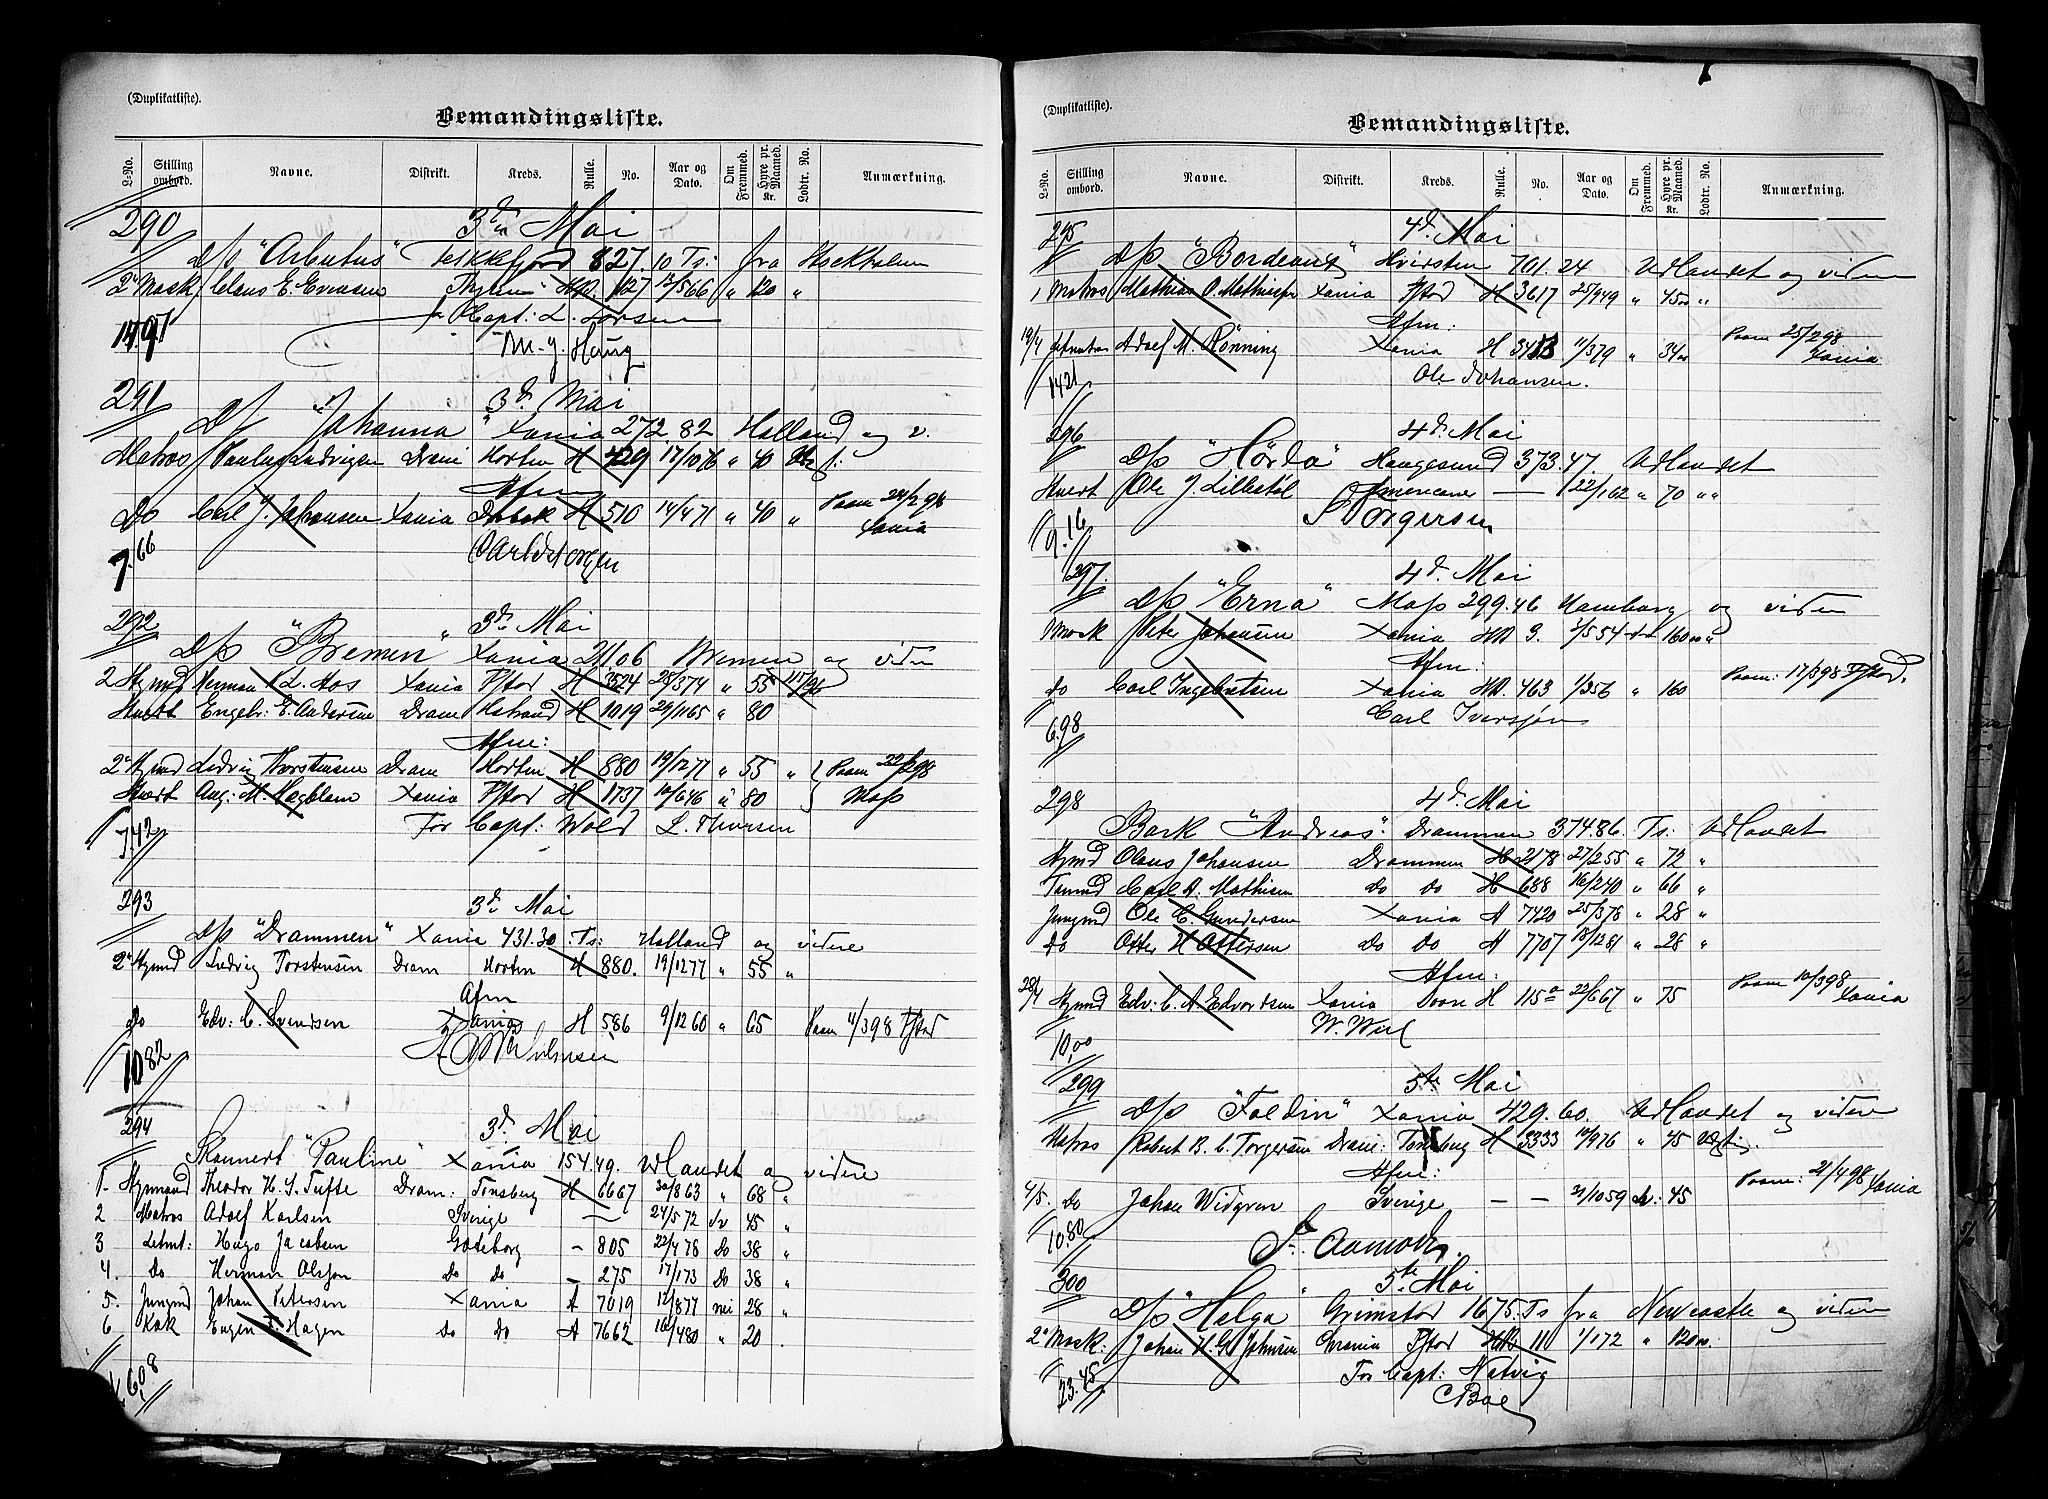 (Duplikatliste).
Bemandingsliste.
L-No. Stilling ombord. Navne. Distrikt. Kreds. Rulle. No. Aar og Dato. Om Fremmed. Hyre pr. Maaned. Kr. Lodtr. No. Anmærkning.
290 3die Mai
D/s "Arbutus" 827. 10 Ts: fra Stockholm
2" Mask Claus E. Evensen HM. 127 12/5 66 " 120 "
Capt: L. Larsen
1491 M. J. Haug
291 3d. Mai
D/s "Johanna" Xania 272.82 Holland og v.
Matros Paulus Ludvigsen Dram Horten H 429 17/10 76 " 40
Afm
Do Carl J. Johansen Xania Drøbak H 510 14/4 71 " 40 " Paam 24/2 98 Xania
7.66
292 3d. Mai
D/s "Bremen" Xania 21.06 Bremen og videre
2 Hymd Herman L. Aos Xania Fstad H 3524 28/3 74 " 55
Stuert Engebr: E. Andersen Dram H 1019 29/11 65 " 80
Afm:
2" Hymd Ludvig Thorstensen Dram Horten H 880 19/12 77 " 55 " Paam 22/2 98
Stuert Aug: M. Hagblom Xania Fstad H 1737 10/6 46 " 80 Moss
7.42 For Capt: Wold L. Thorsen
293 3d. Mai
D/s "Drammen" Xania 431.30 Ts: Holland og videre
2" Hymd Ludvig Torstensen Dram Horten H 880. 19/12 77 " 55 "
Afm
do Edv: C. Svendsen Xania H 586 9/12 60 " 65 Paam 11/3 98 Fstad
10.82
294 3d. Mai
Skonnert "Pauline" Xania 154.49. Udlandet og videre
1. Hymand Theodor H. S. Tufte Dram. Tønsberg H 6667 30/8 63 " 68 "
2 Matros Adolf Karlsen Sverige 24/5 72 do 45 "
3 Letmt: Hugo Jacobsen Gøteborg – 805 22/4 78 Do 38 "
4. Do Herman Olsson do do – 275 17/1 73 Do 38 "
5. Jungmd Johan Petersen Xania A 7019 12/8 77 nei 28 "
6 Kok Eugen F. Hagen do do A 7662 16/4 80 " 20 .
608
(Duplikatliste).
Bemandingsliste.
L-No. Stilling ombord. Navne. Distrikt. Kreds. Rulle. No. Aar og Dato. Om Fremmed. Hyre pr. Maaned. Kr. Lodtr. No. Anmærkning.
295 4d. Mai
D/s "Bordeaux" Hvirsten 701.24 Udlandet og videre
1 Matros Mathias O. Mathiesen Xania Fstad H 3617 25/9 49 " 45 00 "
Afm:
19/4 Adolf M. Rønning Xania H 11/3 79 " 34 00 Paam 25/2 98 Xania
1421 Ole Johansen.
296 4d. Mai
D/s "Hørda" Haugesund 373.47. Udlandet
Stuert Ole J Lillestøl Amerikaner — 22/1 62 " 70 " "
9.16 S Torgersen
297. 4d. Mai
D/s "Erna" Moss 299.46 Hamburg og videre
1 Mask Peter Johansen Xania HM 9. 1/5 54 160 00 "
Afm:
do Carl Ingebretsen Xania HM. 463 1/2 56 " 160 Paam: 17/3 98 Fstad.
6.98 Carl Iversen
298 4d. Mai
Bark "Andreas". Drammen 374.86. Ts: Udlandet
Hymd Olaus Johansen Drammen H 2178 27/2 55 " 72 "
Tømmd Carl A. Mathisen do do H 688 16/2 40 " 66 "
Jungmd Ole C. Gundersen Xania A 7420 25/3 78 " 28 "
do Otter H Ottersen do do A 7707 18/12 81 " 28 "
Afm:
28/4 Hymd Edv: C. A. Edvardsen Xania H 115a 22/6 67 " 75 Paam 10/3 98 Xania
10,00
299 5te Mai
D/s "Foldin" Xania 429.60. Udlandet og videre
Matros Robert B. C. Torgersen Dram: Tønsberg H 3333 10/9 76 " 45
Afm:
4/5. Do Johan Widgren Sverige – – 21/10 59 do: 45 Paam: 21/4 98 Xania
10.80 Aamodt.
300 5te Mai
D/s "Helga" Grimstad 1675. Ts fra Newcastle og videre
2" Mask: Johan H. G. Johnsen Xrania Fstad HM 110 1/1 72 " 120 00.
23.45 For Capt: Natvig
C Boe